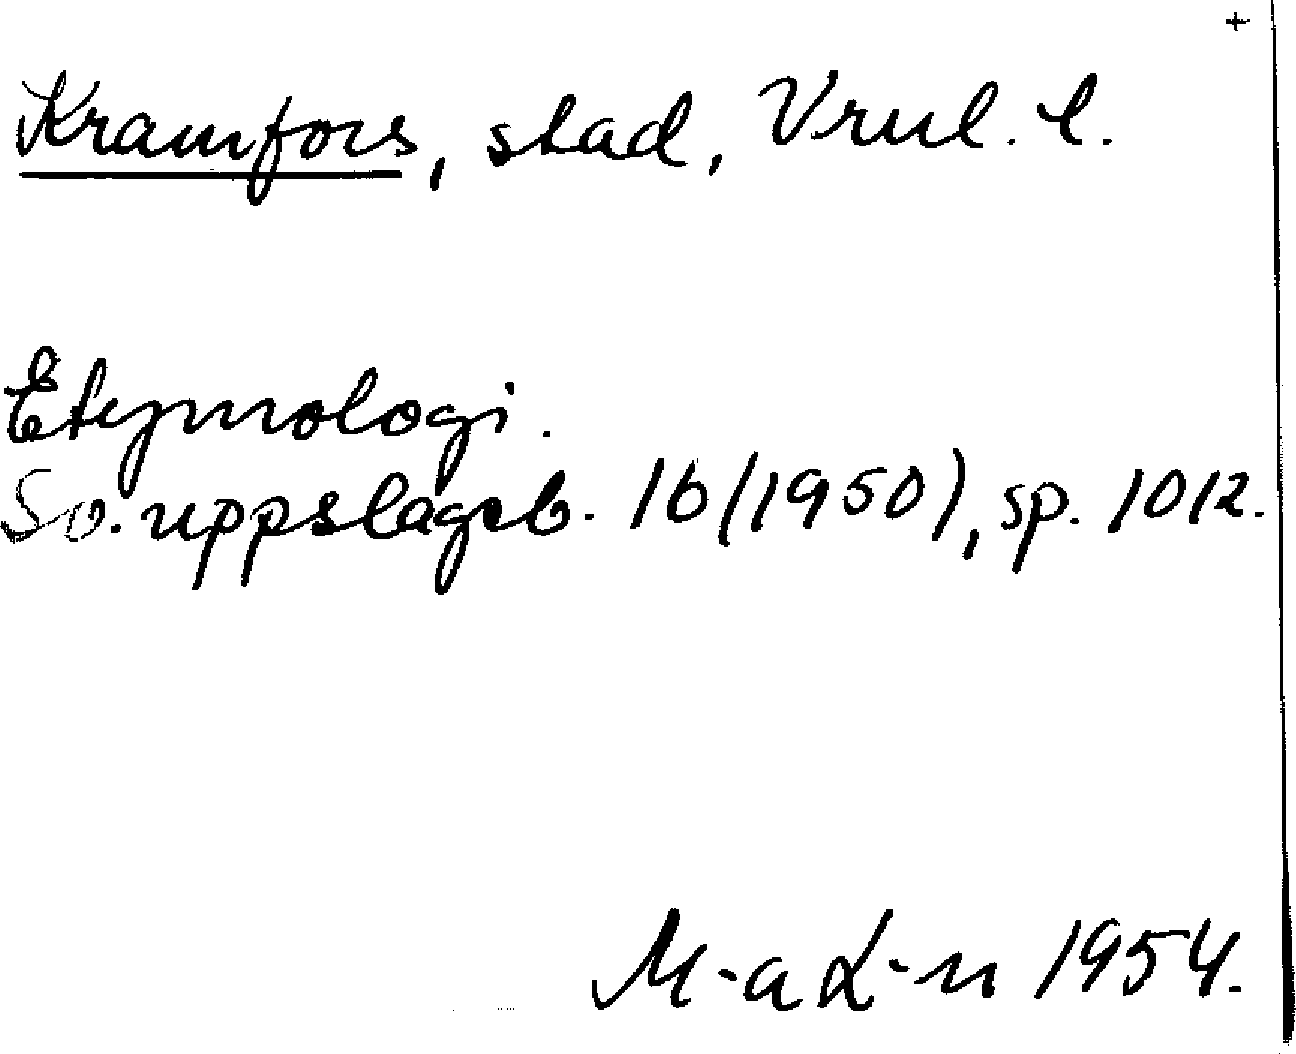 +
Kramfors, stad, Vrnl. l.
Etymologi.
Sv. uppslagsb. 16 (1950), sp. 1012.
M-a L-n 1954.